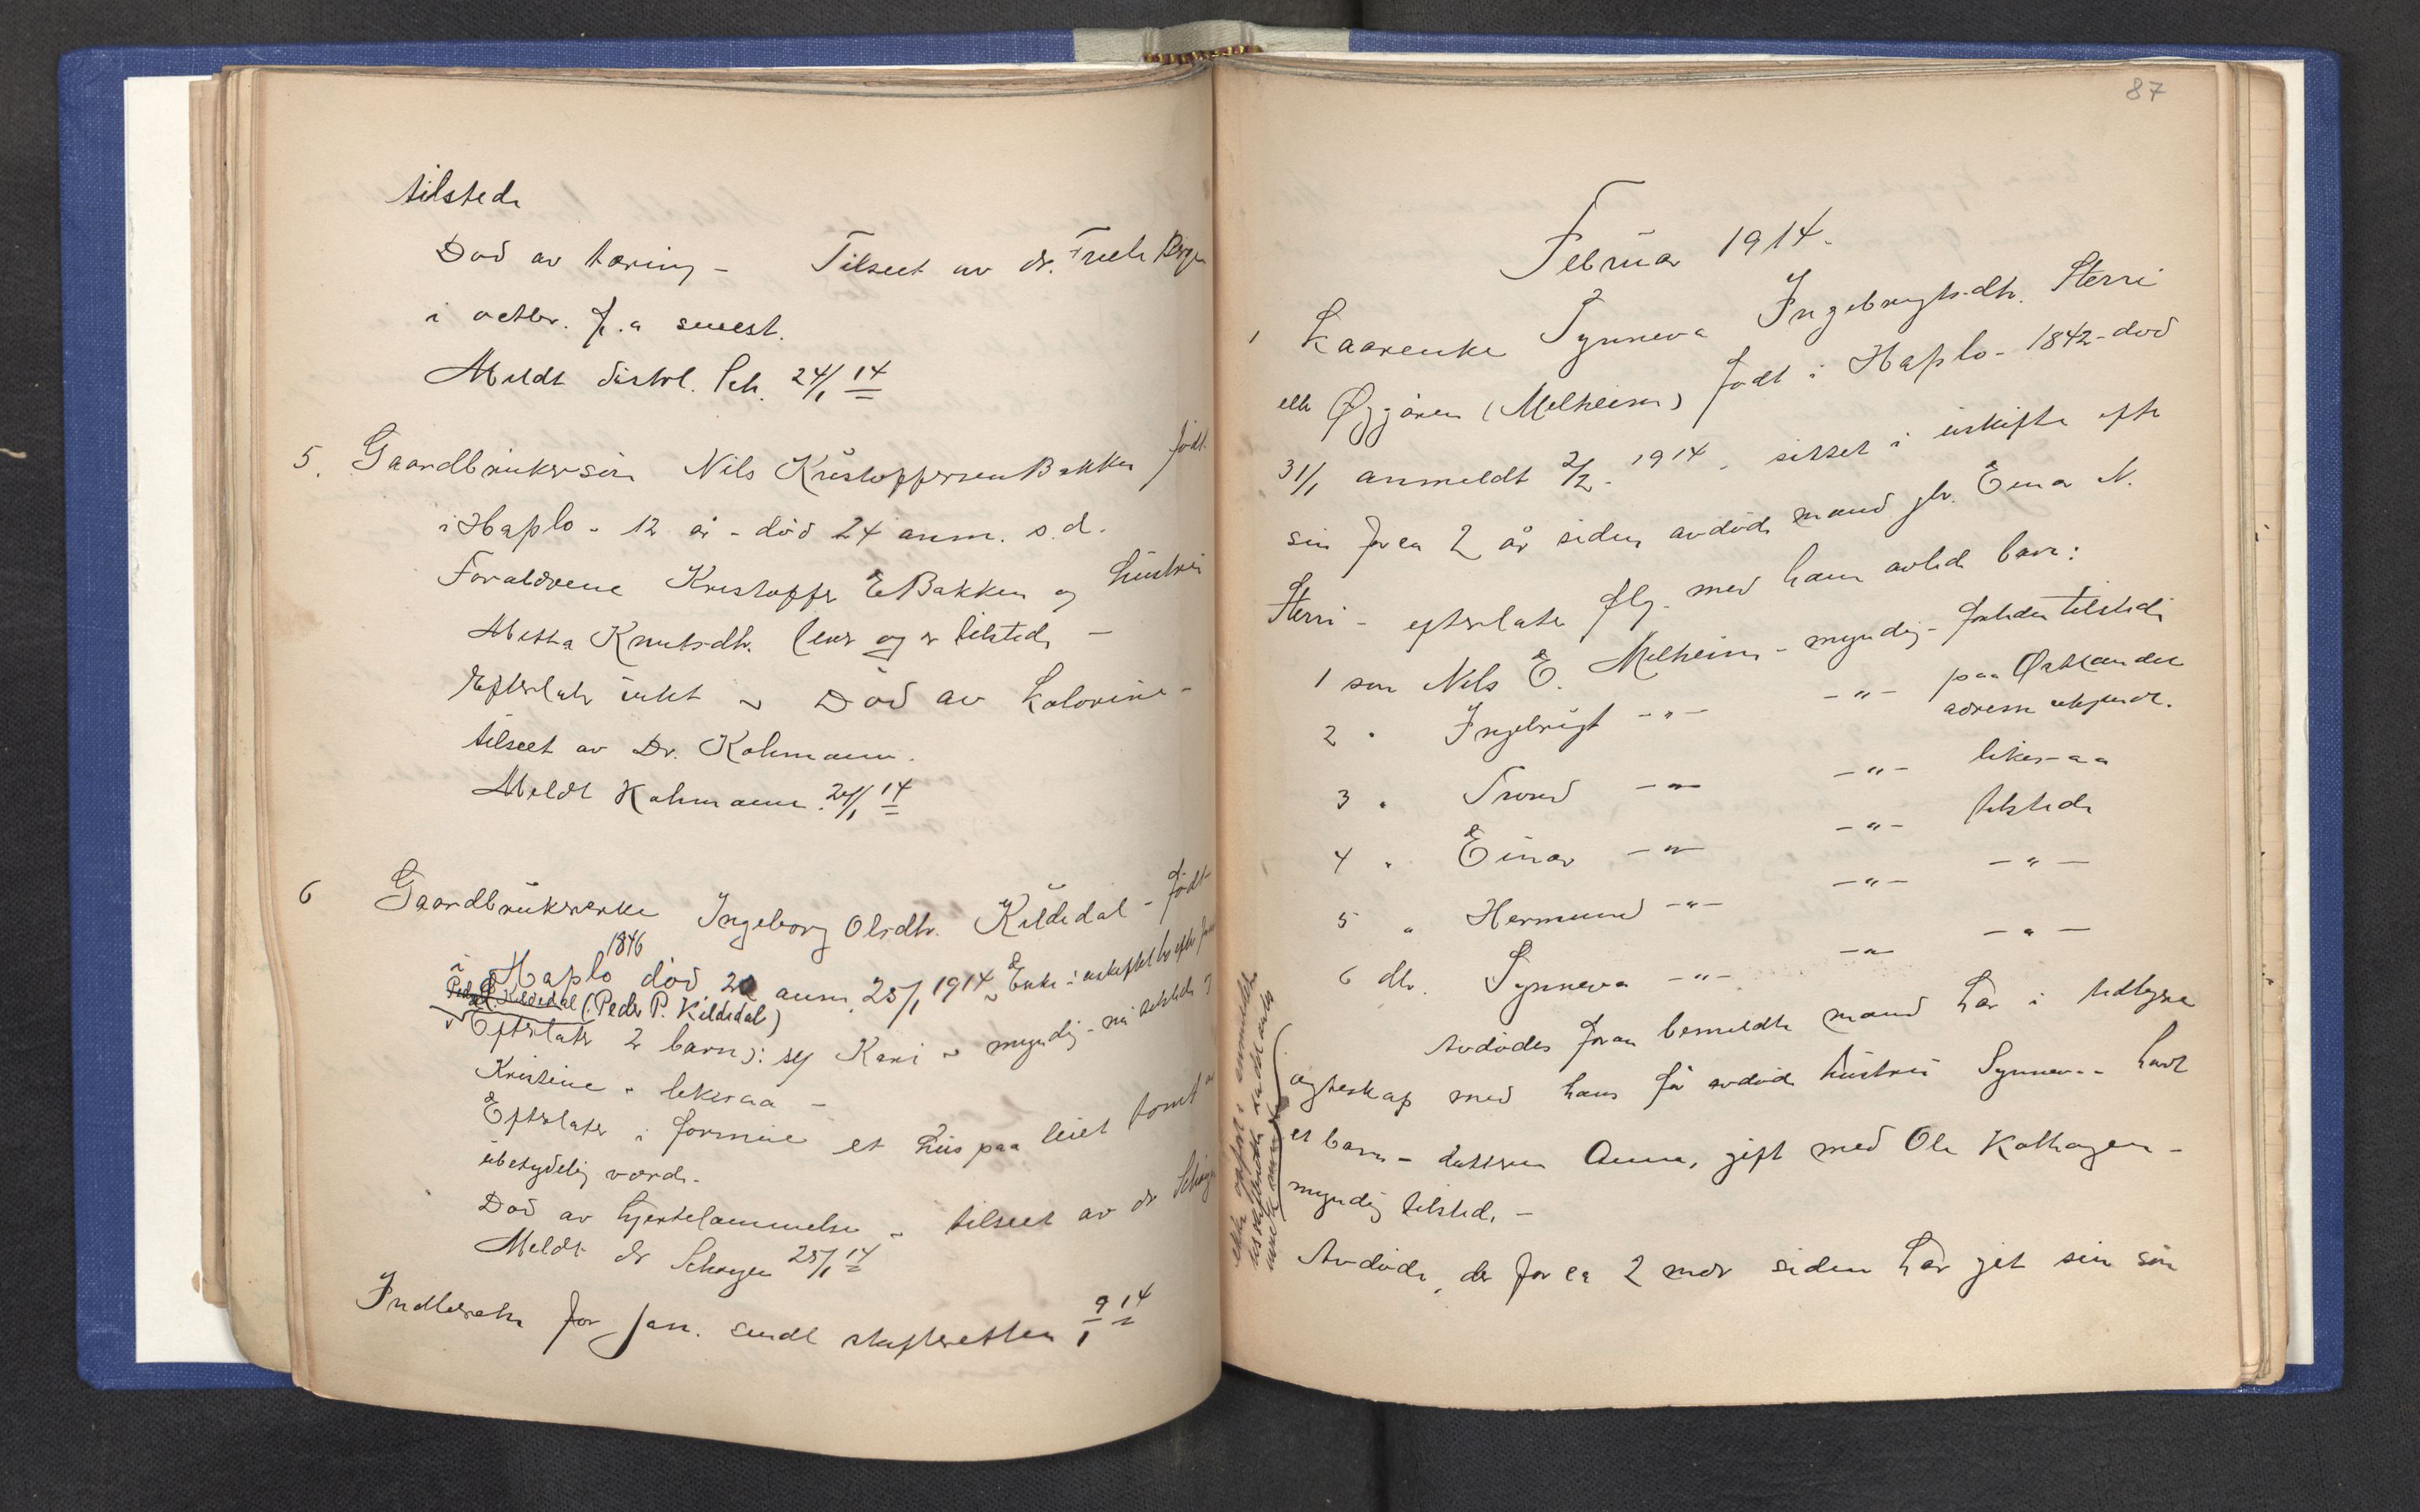 tilstede
Død av tæring - Tilseet av dr. Friele Bergen
i octbr. f.a senest.
Meldt distrl. Sch. 24/1 14
5. Gaardbrukersøn Nils Kristoffersen Bakken født
i Hafslo - 12 år - død 24 anm. s.d.
Forældrene Kristoffer E Bakken og hustru
Metta Knutsdtr. lever og er tilstede -
Efterlater intet - Død av
tilseet av Dr. Kahmann.
Meldt Kahmann 24/1 14
6 Gaardbrukerenke Ingeborg Olsdtr. Kildedal - født
i Hafslo 1846 død 20 anm. 25/1 1914 - Enke i uskiftet bo efter
Peder P. Kildedal (Peder P. Kildedal)
Efterlater 2 barn: Kari - myndig - nu tilstede og
Kristine - likesaa -
Efterlater i formue et hus paa leiet tomt av
ubetydelig værdi.
Død av hjertelammelse - tilseet av dr Schøyen
Meldt dr Schøyen 25/1 14
Indberetn for Jan. sendt skifteretten 9/1 14
87
Februar 1914.
1 Kaarenke Synneva Ingebrigtsdtr. Sterri
eller Øygaren (Melheim) født i Hafslo - 1842 - død
31/1 anmeldt 2/2 - 1914, sittet i uskifte efter
sin for ca 2 år siden avdøde mand gbr. Einar N.
Sterri - efterlater flg. med ham avlede barn:
1 søn Nils E. Melheim - myndig - forleden tilstede
2 " Ingebrigt -"- -"- paa Østlandet
adresse ubekjendt.
3 " Trond -"- -"- likesaa
4 " Einar -"- -"- tilstede
5 " Hermund -"- -"- -"-
6 dtr. Synneva -"- -"- -"-
Avdødes foran bemeldte mand har i tidligere
egteskap med hans før avdøde hustru Synneva havt
et barn - datteren Anna, gift med Ole Kolhagen -
myndig tilstede -
Avdøde, der for ca 2 mdr siden har git sin søn